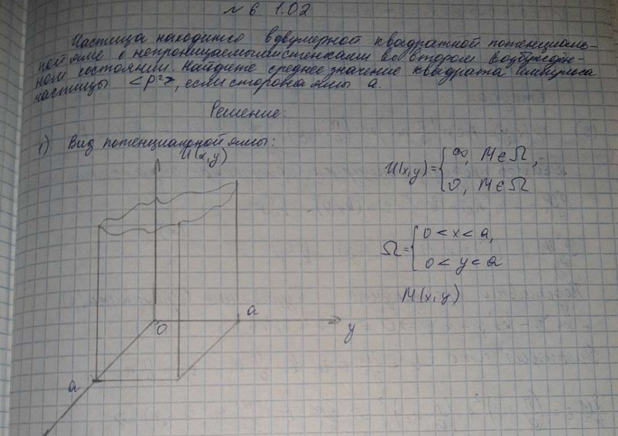 № 6 1.02
Частица находится в двумерной квадратной потенциаль-
ной яме с непроницаемыми стенками во втором возбужден-
ном состоянии. Найдите среднее значение квадрата импульса
частицы <P²>, если сторона ямы a.
Решение:
1) Вид потенциальной ямы:
U(x,y)
U(x,y)={∞, M∈Ω,
0, M∈Ω
Ω={0<x<a,
0<y<a
M(x,y)
a
0
y
a